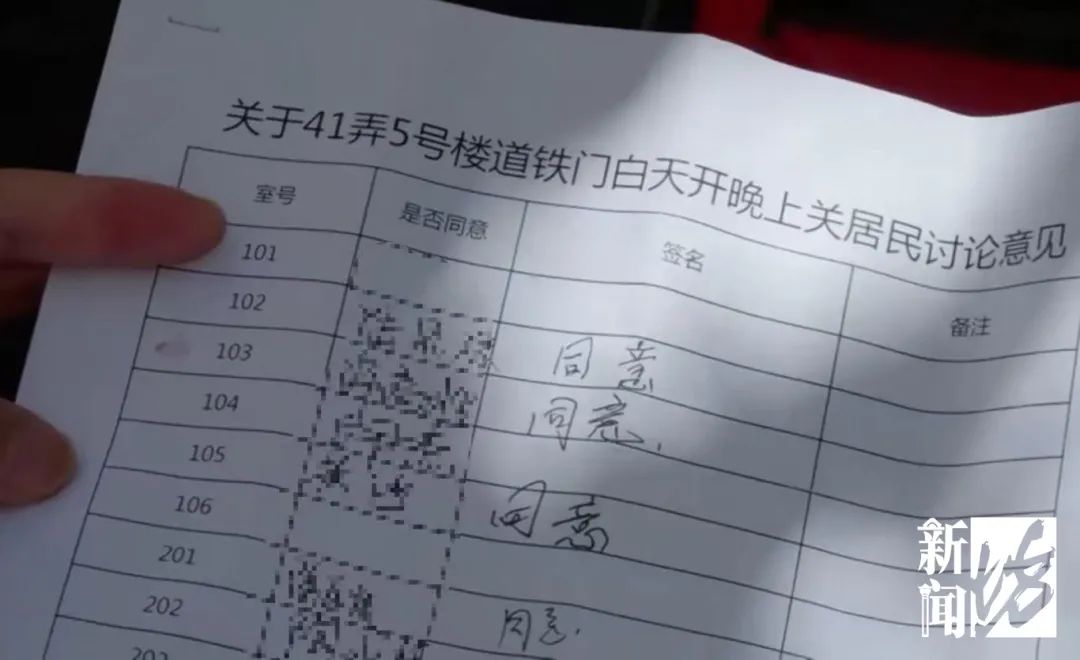 关于41弄5号楼道铁门白天开晚上关居民讨论意见
室号 是否同意 签名 备注
101
102
103 同意
104 同意.
105
106 同意
201
202 同意.
203
新闻